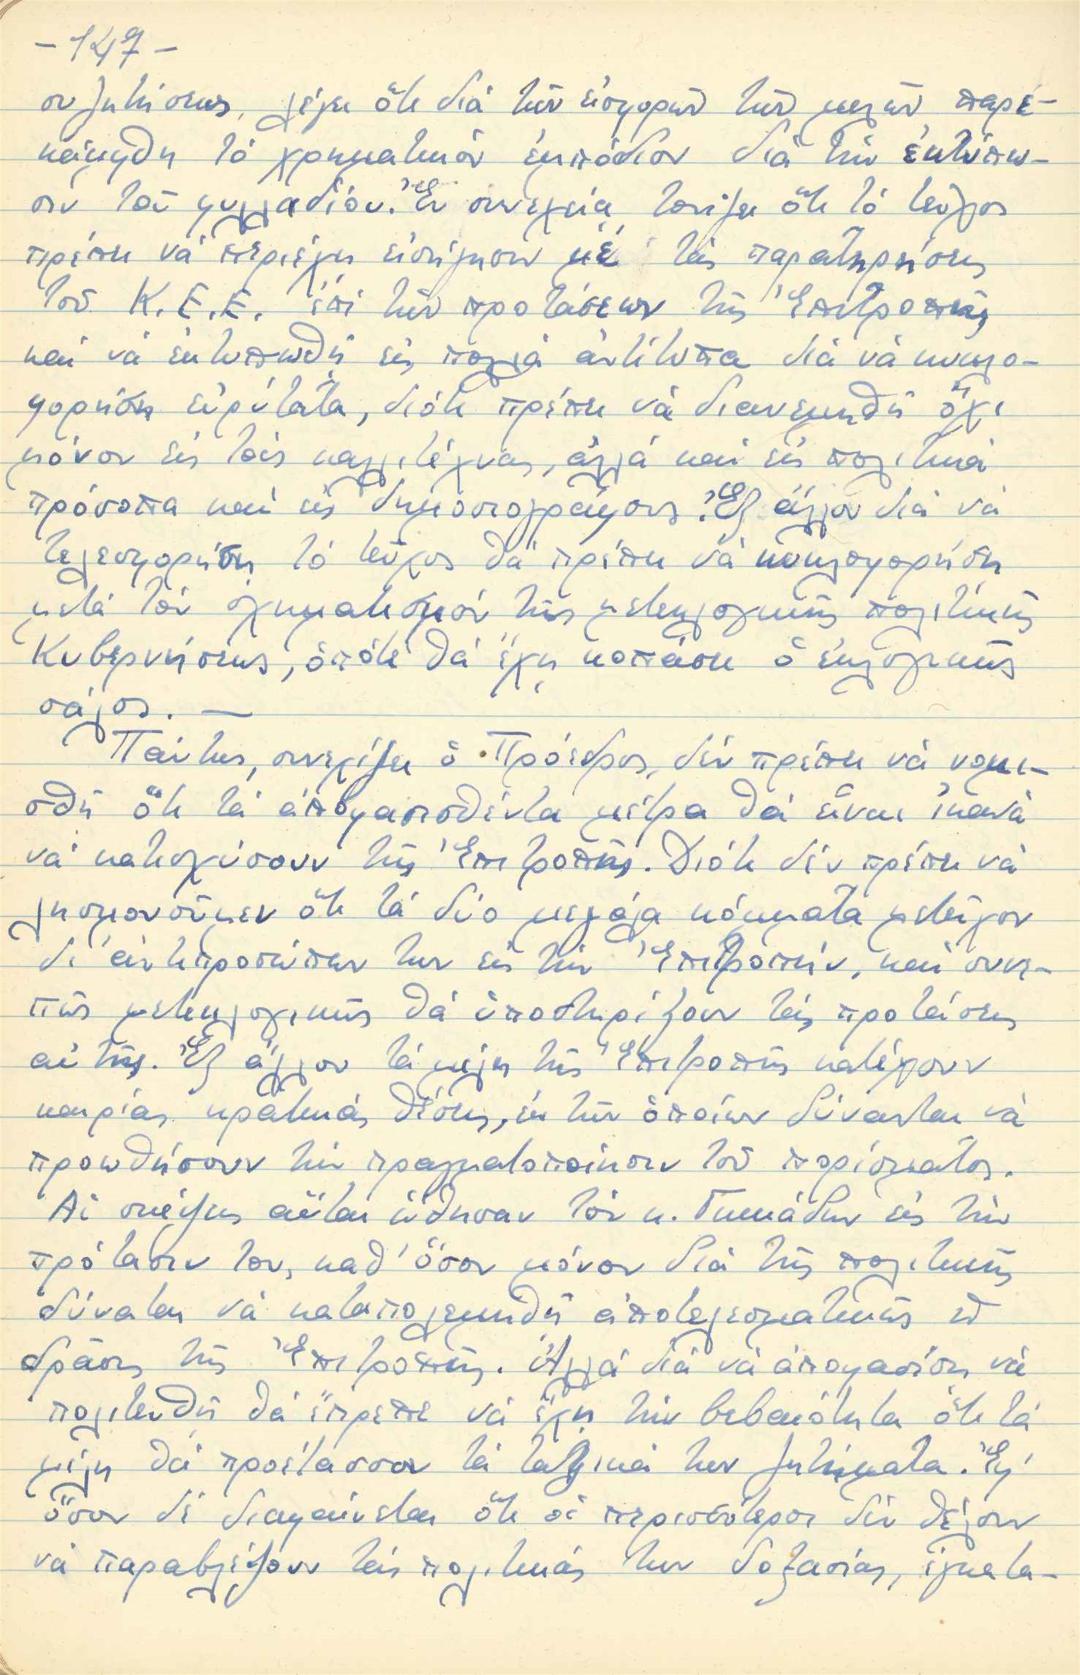 -147-
συζητήσεως, λέγει ὅτι διά τῶν εἰσφορῶν τῶν μελῶν παρε-
κάμφθη τό χρηματικόν ἐμπόδιον διά τήν ἐκτύπω-
σιν τοῦ φυλλαδίου. Ἐν συνεχείᾳ τονίζει ὅτι τό τεῦχος
πρέπει νά περιέχῃ εἰσήγησιν μέ τάς παρατηρήσεις
τοῦ Κ.Ε.Ε. ἐπί τῶν προτάσεων τῆς Ἐπιτροπῆς
καί νά ἐκτυπωθῇ εἰς πολλά ἀντίτυπα διά νά κυκλο-
φορήσῃ εὐρύτατα, διότι πρέπει νά διανεμηθῇ ὄχι
μόνον εἰς τούς καλλιτέχνας, ἀλλά καί εἰς πολιτικά
πρόσωπα καί εἰς δημοσιογράφους. Ἐξ ἄλλου διά νά
τελεσφορήσῃ τό τεῦχος θά πρέπει νά κυκλοφορήσῃ
μετά τόν σχηματισμόν τῆς μετεκλογικῆς πολιτικῆς
Κυβερνήσεως, ὁπότε θά ἔχῃ κοπάσει ὁ ἐκλογικός
σάλος. —
Πάντως, συνεχίζει ὁ Πρόεδρος, δέν πρέπει νά νομι-
σθῇ ὅτι τά ἀποφασισθέντα μέτρα θά εἶναι ἱκανά
νά κατισχύσουν τῆς Ἐπιτροπῆς. Διότι δέν πρέπει νά
λησμονοῦμεν ὅτι τά δύο μεγάλα κόμματα μετεῖχον
δι' ἀντιπροσώπων των εἰς τήν Ἐπιτροπήν, καί συνε-
πῶς μετεκλογικῶς θά ὑποστηρίξουν τάς προτάσεις
αὐτῆς. Ἐξ ἄλλου τά μέλη τῆς Ἐπιτροπῆς κατέχουν
καιρίας κρατικάς θέσεις, ἐκ τῶν ὁποίων δύνανται νά
προωθήσουν τήν πραγματοποίησιν τοῦ πορίσματος.
Αἱ σκέψεις αὗται ὤθησαν τόν κ. εἰς τήν
πρότασίν του, καθ' ὅσον μόνον διά τῆς πολιτικῆς
δύναται νά καταπολεμηθῇ ἀποτελεσματικῶς ἡ
δρᾶσις τῆς Ἐπιτροπῆς. Ἀλλά διά νά ἀποφασίσῃ νά
πολιτευθῇ θά ἔπρεπε νά ἔχῃ τήν βεβαιότητα ὅτι τά
μέλη θά προέτασσον τά ταξικά των ζητήματα. Ἐφ'
ὅσον δέ διαφαίνεται ὅτι οἱ περισσότεροι δέν θέλουν
νά παραβλέψουν τάς πολιτικάς των δοξασίας, ἐγκατα-